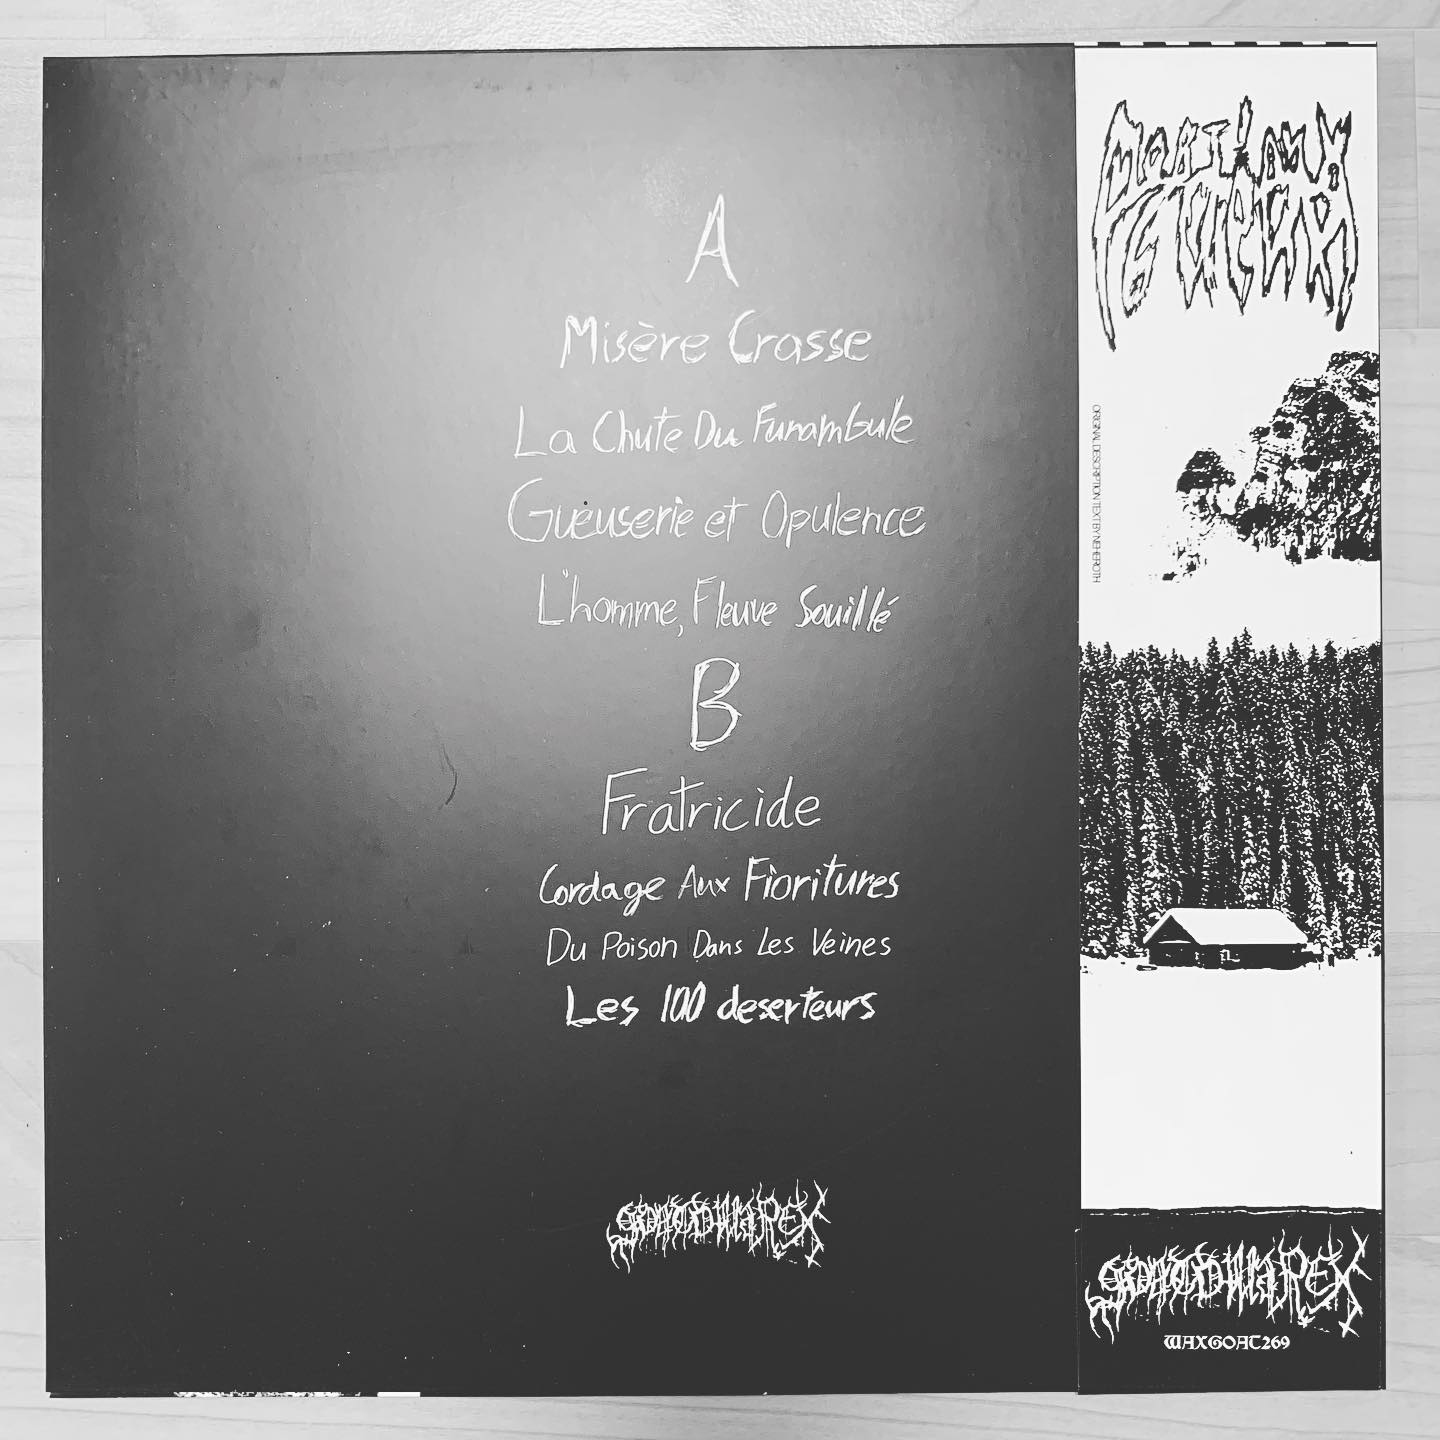 A
Misère Crasse
La Chute Du Funambule
Gueuserie et Opulence
L'homme, Fleuve Souillé
B
Fratricide
Cordage Aux Fioritures
Du Poison Dans Les Veines
Les 100 deserteurs
GOATOWAREX
ORIGINAL DESCRIPTION TEXT BY NEHEROTH
GOATOWAREX
WAXGOAT269